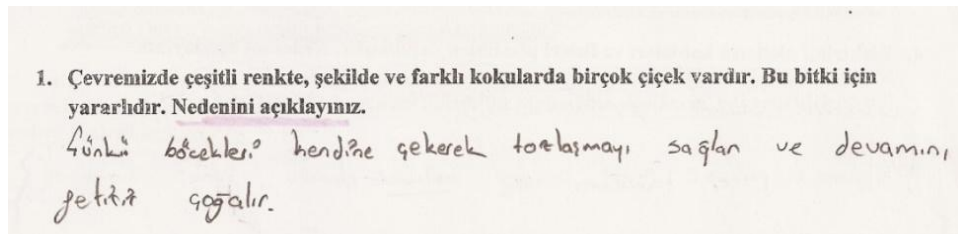 1. Çevremizde çeşitli renkte, şekilde ve farklı kokularda birçok çiçek vardır. Bu bitki için
yararlıdır. Nedenini açıklayınız.
Günkü böcekleri kendine çekerek tozlaşmayı sağlan ve devamını
getirir çoğalır.